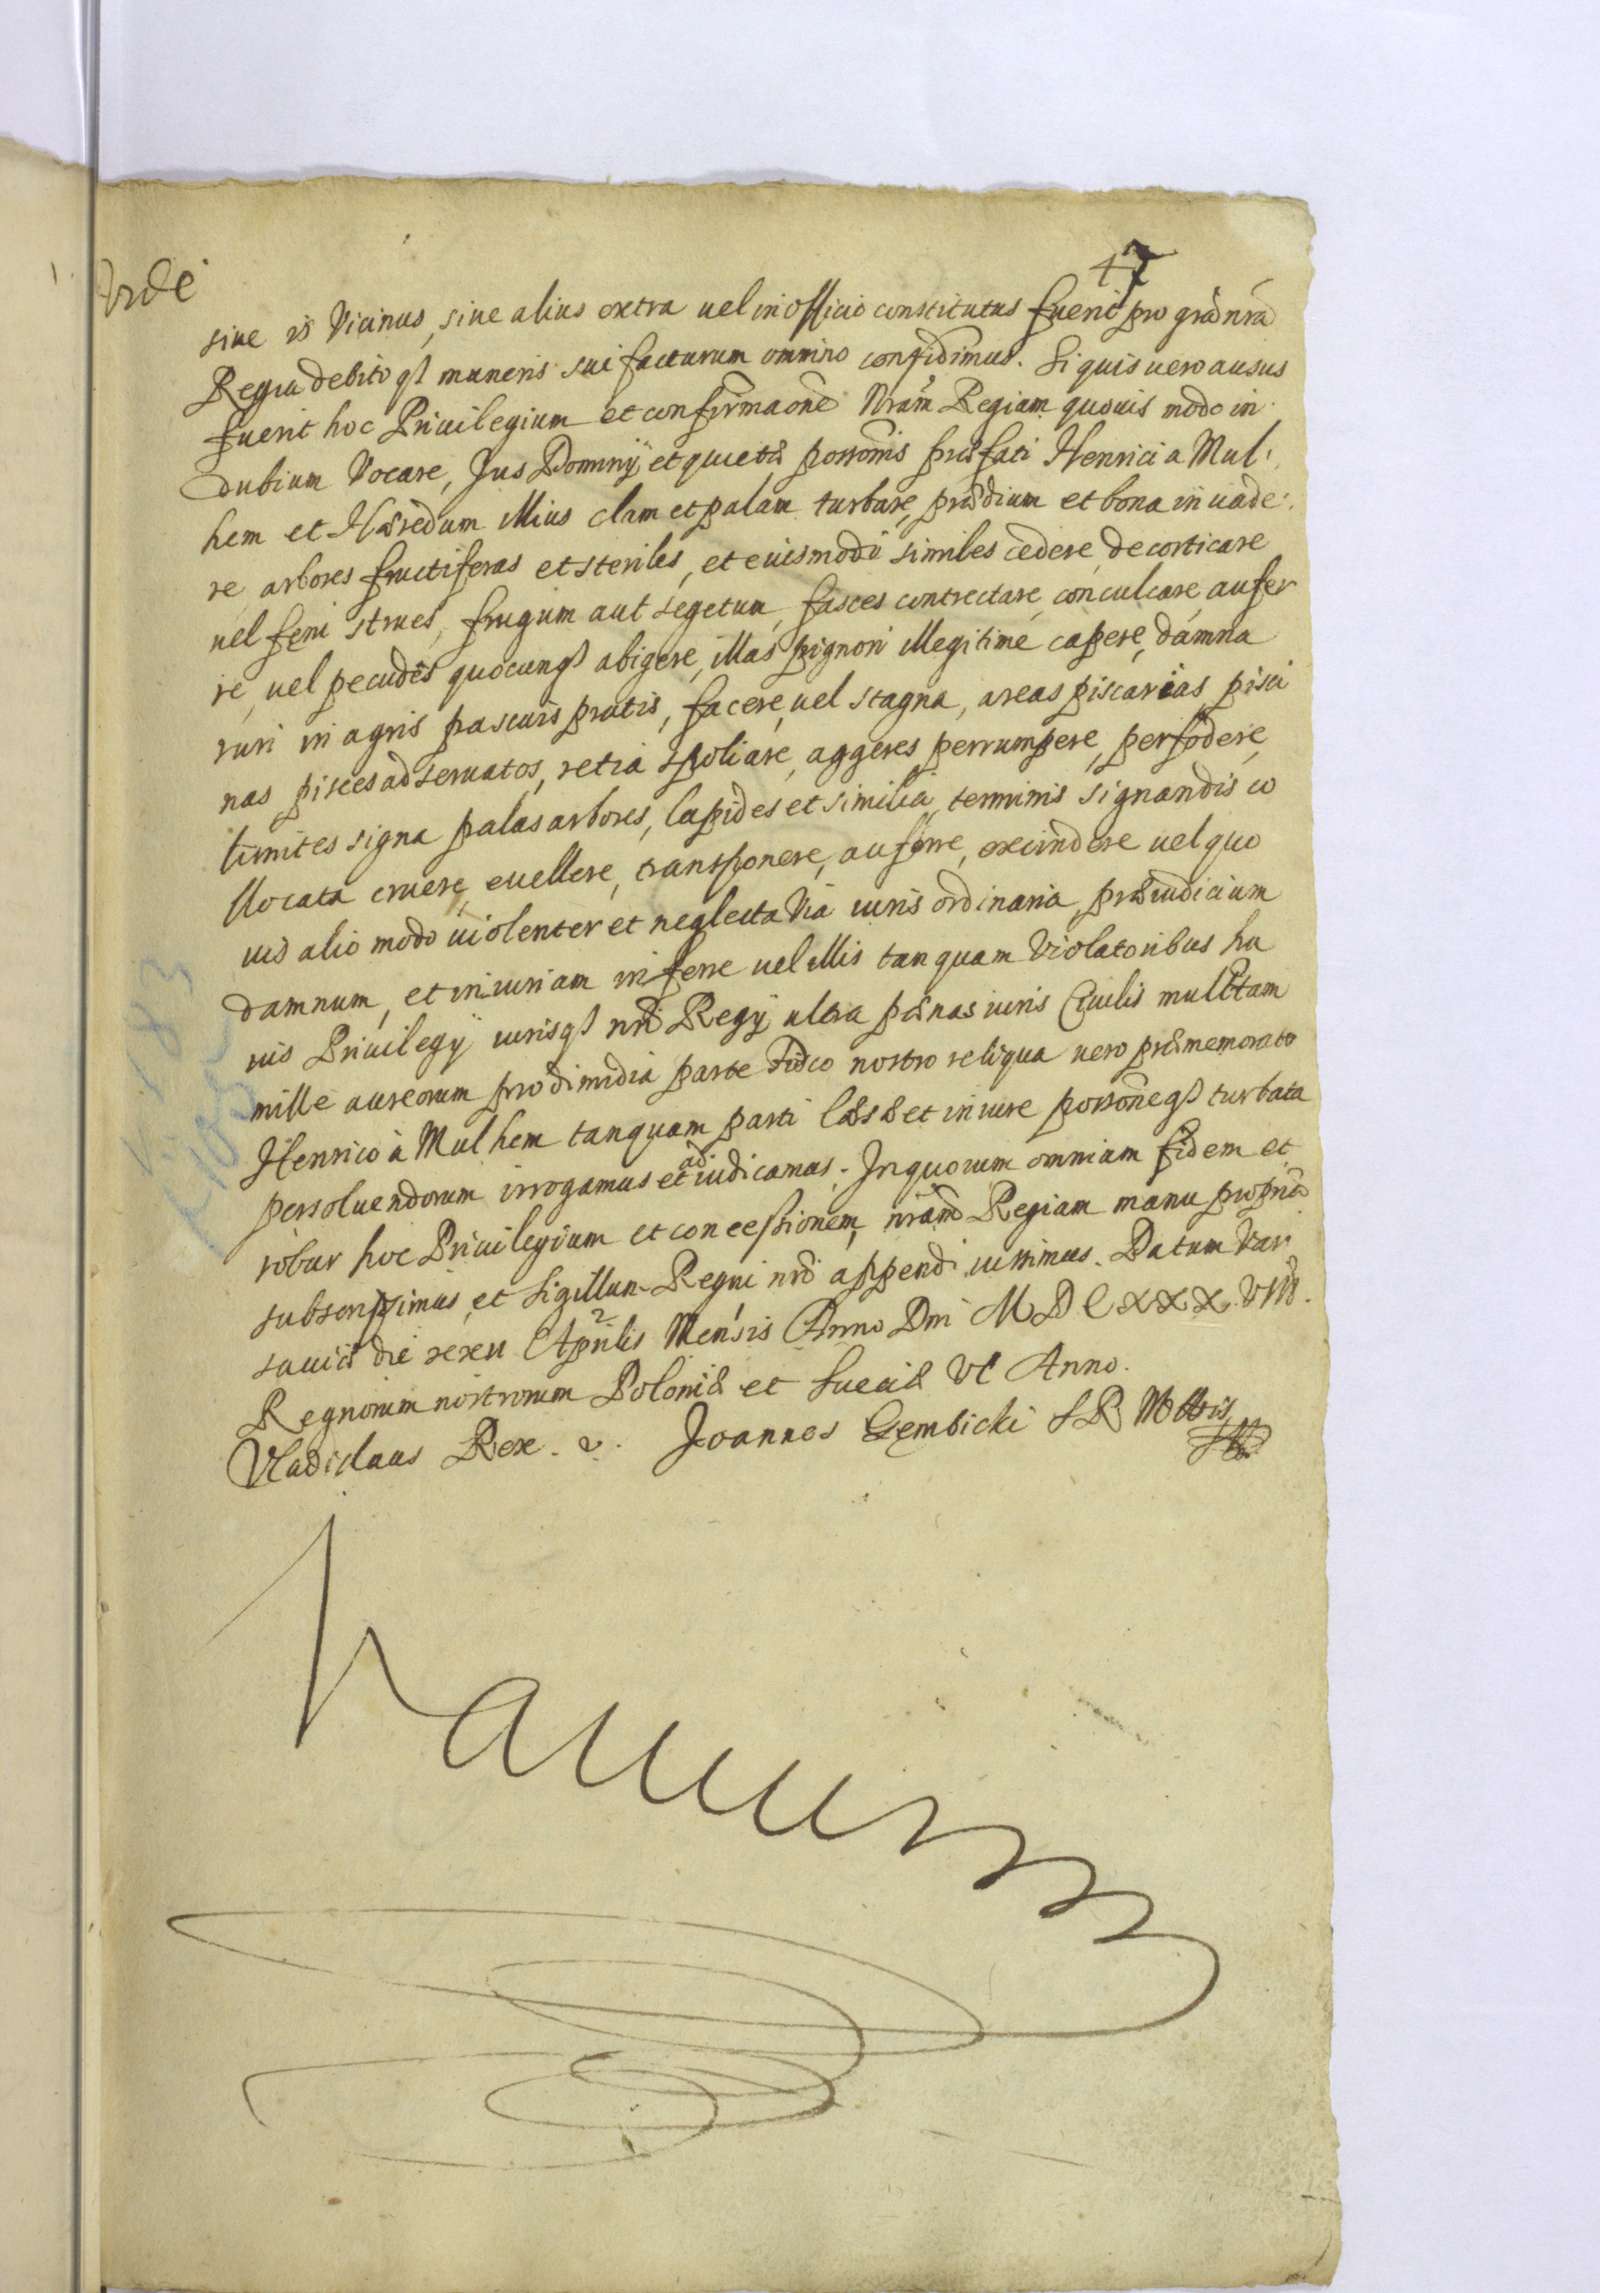 47
siue is Vicinus, siue alius extra uel in officio constitutus fuerit pro gratia nra
Regia debitoq3 muneris sui facturum omnino confidimus. Si quis uero ausus
fuerit hoc Priuilegium et confirmaone Nram Regiam quouis modo in
dubium Vocare, Jus Dominij et quietæ possonis præfati Henrici a Mul
hem et Hæredum illius clam et palam turbare, prædium et bona inuade
re arbores fructiferas et steriles, et eiusmodi similes cedere, decorticare
uel feni strues, frugum aut segetum, fasces contrectare, conculcare, aufer
re, uel pecudes quocunq3 abigere, illas pignori illegitime capere, damna
ruri in agris pascuis pratis, facere, uel stagna, areas piscarias, pisci
nas pisces adseruatos, retia spoliare, aggeres perrumpere, perfodere,
limites signa palas arbores, lapides et similia, terminis signandis co
llocata eruere, euellere, transponere, auferre, excindere uel quo
uis alio modo uiolenter et neglecta Via iuris ordinaria, præiudicium
damnum, et iniuriam inferre uel illis tanquam Violatoribus hu
ius Priuilegij iurisq3 nri Regij ultra pænas iuris Ciuilis mulctam
mille aureorum pro dimidia parte Fisco nostro reliqua uero præmemorato
Henrico à Mulhem tanquam parti læsæ et in iure possoneq3 turbata
persoluendorum irrogamus et adiudicamus. In quorum omnium fidem et
robur hoc Priuilegium et concessionem, nram Regiam manu propria
subscripsimus, et Sigillum Regni nri appendi iussimus. Datum Var
sauiæ die xexu Aprilis Mensis Anno Dni M D C X X X VIII.
Regnorum nostrorum Poloniæ et Sueciæ VI Anno.
Vladislaus Rex. Joannes Gembicki S R Mttis